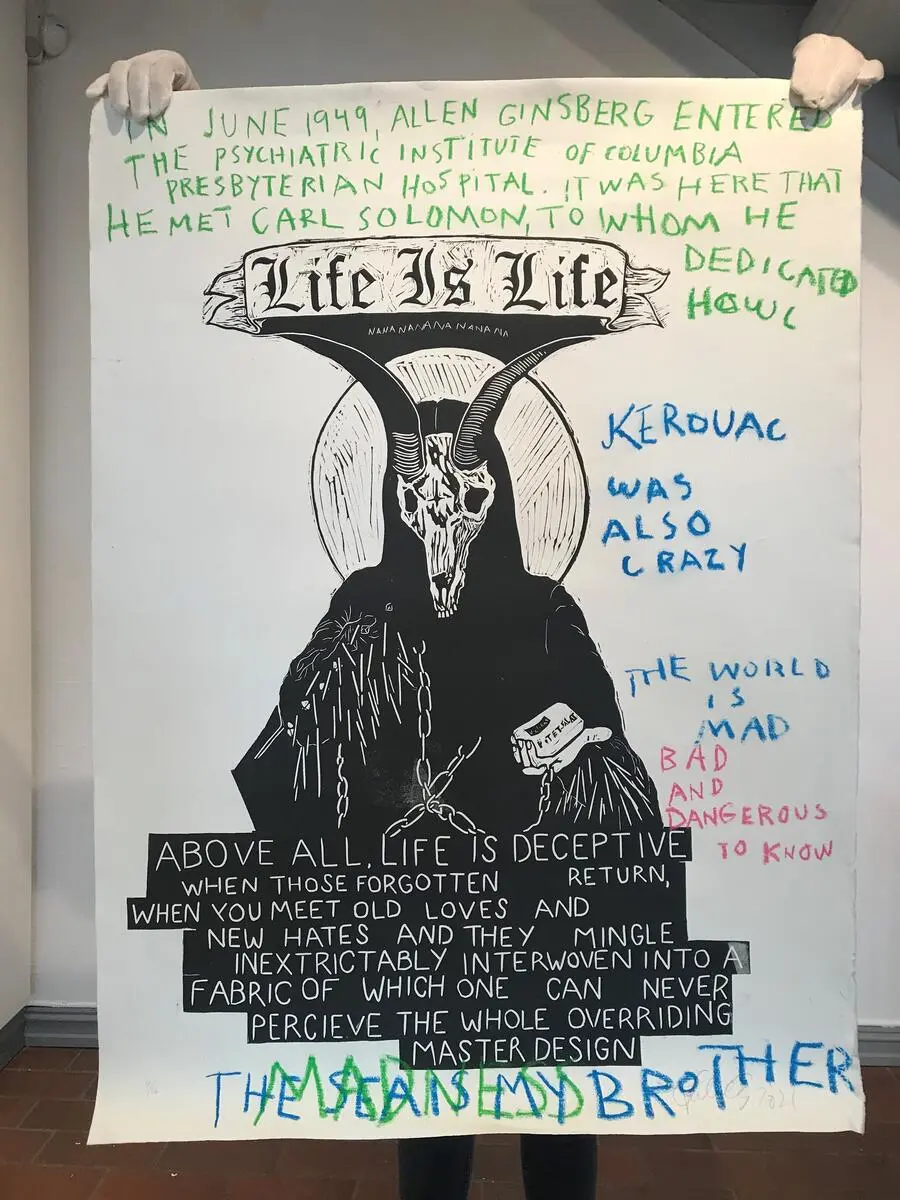 IN JUNE 1949, ALLEN GINSBERG ENTERED
THE PSYCHIATRIC INSTITUTE OF COLUMBIA
PRESBYTERIAN HOSPITAL. IT WAS HERE THAT
HE MET CARL SOLOMON, TO WHOM HE
DEDICATED
HOWL
Life Is Life
NANANANANANANANA
KEROUAC
WAS
ALSO
CRAZY
THE WORLD
IS
MAD
BAD
AND
DANGEROUS
TO KNOW
ABOVE ALL, LIFE IS DECEPTIVE
WHEN THOSE FORGOTTEN RETURN,
WHEN YOU MEET OLD LOVES AND
NEW HATES AND THEY MINGLE
INEXTRICTABLY INTERWOVEN INTO A
FABRIC OF WHICH ONE CAN NEVER
PERCIEVE THE WHOLE OVERRIDING
MASTER DESIGN
THE SEA IS MY BROTHER
MADNESS